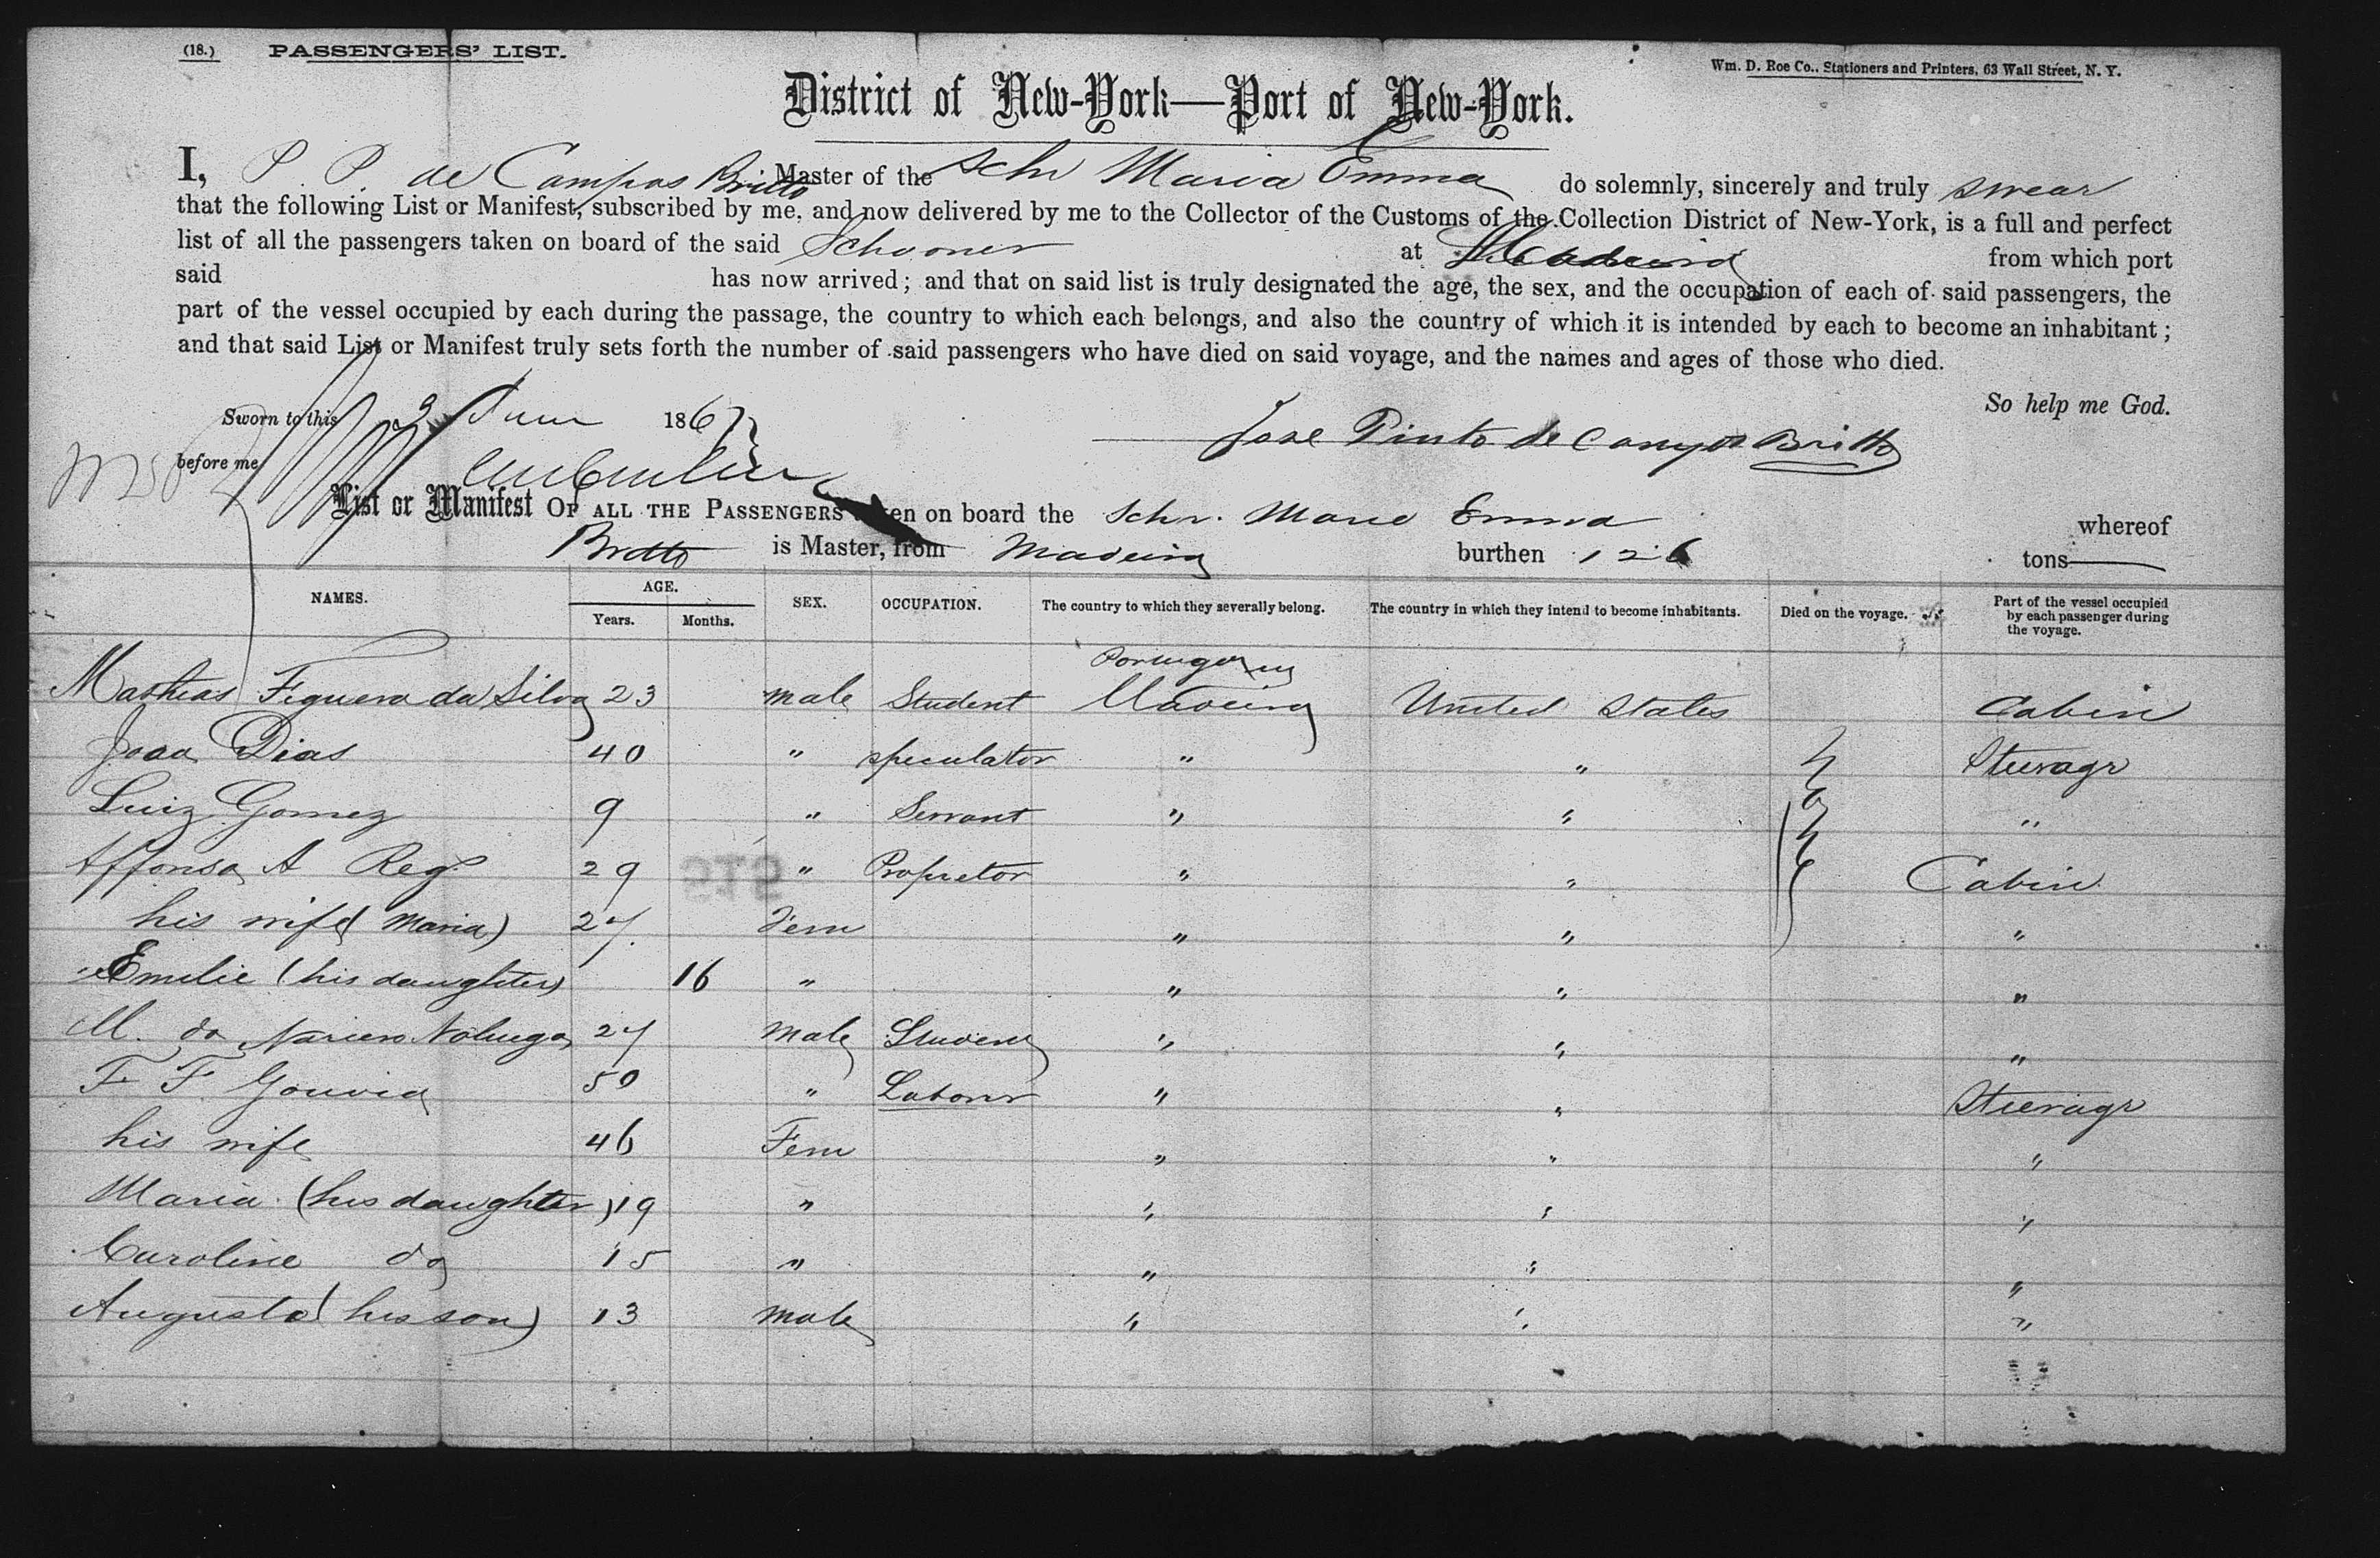 (18.) PASSENGERS' LIST.
Wm. D. Roe Co., Stationers and Printers, 63 Wall Street, N. Y.
District of New-York—Port of New-York.
I, P. P. de Campos Britto Master of the Schr Maria Emma do solemnly, sincerely and truly swear
that the following List or Manifest, subscribed by me, and now delivered by me to the Collector of the Customs of the Collection District of New-York, is a full and perfect
list of all the passengers taken on board of the said Schooner at Madeira from which port
said has now arrived; and that on said list is truly designated the age, the sex, and the occupation of each of said passengers, the
part of the vessel occupied by each during the passage, the country to which each belongs, and also the country of which it is intended by each to become an inhabitant;
and that said List or Manifest truly sets forth the number of said passengers who have died on said voyage, and the names and ages of those who died.
So help me God.
Sworn to this 3 June 1867
Jose Pinto de Campos Britto
before me
List or Manifest OF ALL THE PASSENGERS taken on board the Schr. Maria Emma whereof
Britto is Master, from Madeira burthen 126 tons
NAMES. AGE. Years. Months. SEX. OCCUPATION. The country to which they severally belong. The country in which they intend to become inhabitants. Died on the voyage. Part of the vessel occupied by each passenger during the voyage.
Mathias Figuera da Silva 23 male Student Madeira United States Cabin
Joao Dias 40 " speculator " " Steerage
Luiz Gomez 9 " Servant " " "
Affonso A Reg 29 " Proprietor " " Cabin
his wife (Maria) 27 Fem " " "
Emilie (his daughter) 16 " " " "
M. do 27 Male Student " " "
F F Gouvea 50 " Laborer " " Steerage
his wife 46 Fem " " "
Maria (his daughter) 19 " " " "
Caroline do 15 " " " "
Augusto (his son) 13 male " " "